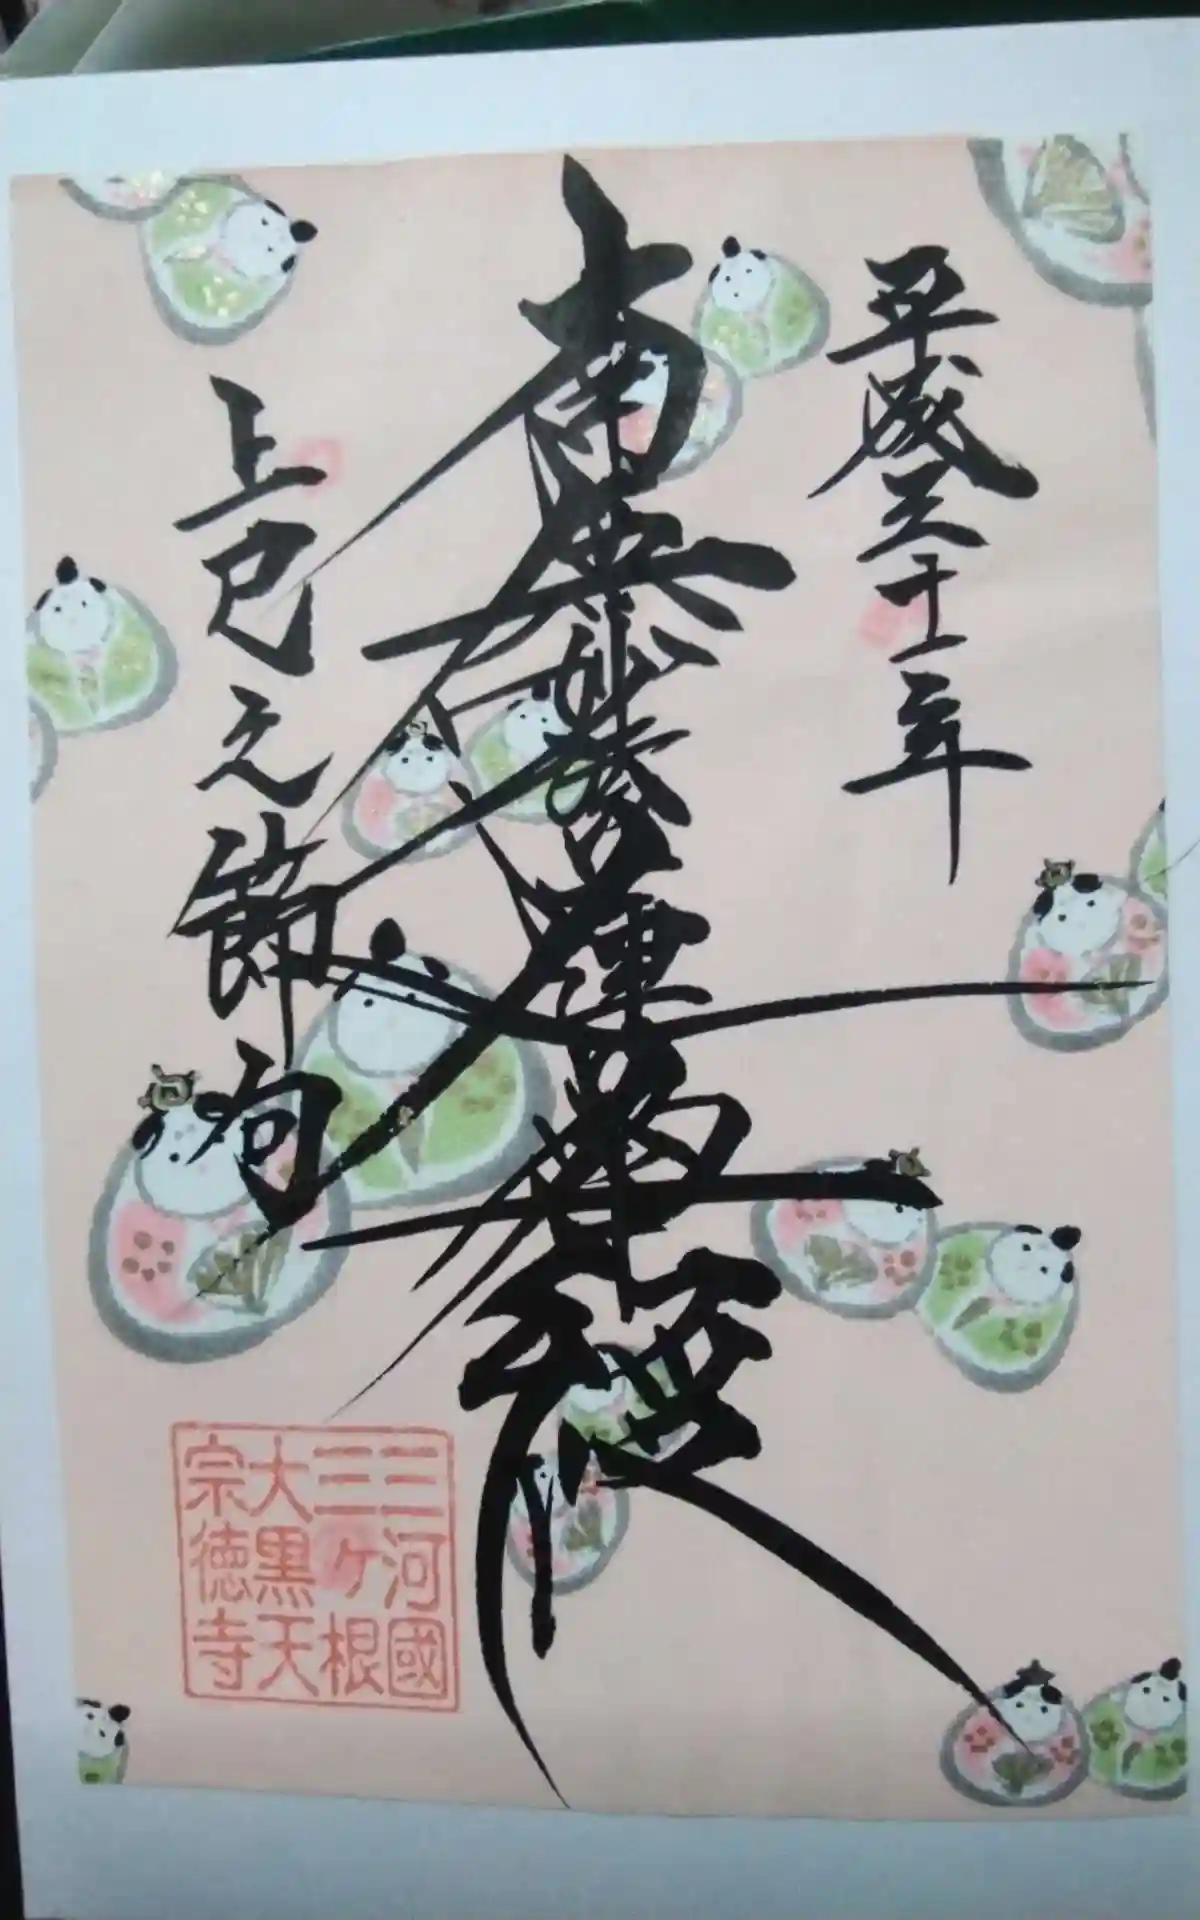 平成三十一年
南無妙
上巳之節句
三河國
三ヶ根
大黒天
宗徳寺